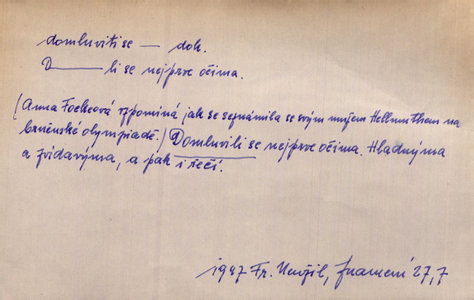 domluviti se — dok.
D——— li se nejprve očima.
(Anna Fockeová vzpomíná jak se seznámila se svým mužem Hellmuthem na
brněnské olympiadě.) Domluvili se nejprve očima. Hladnýma
a zvídavýma, a pak i řečí.
1947 Fr. Neužil, znamení 27,7